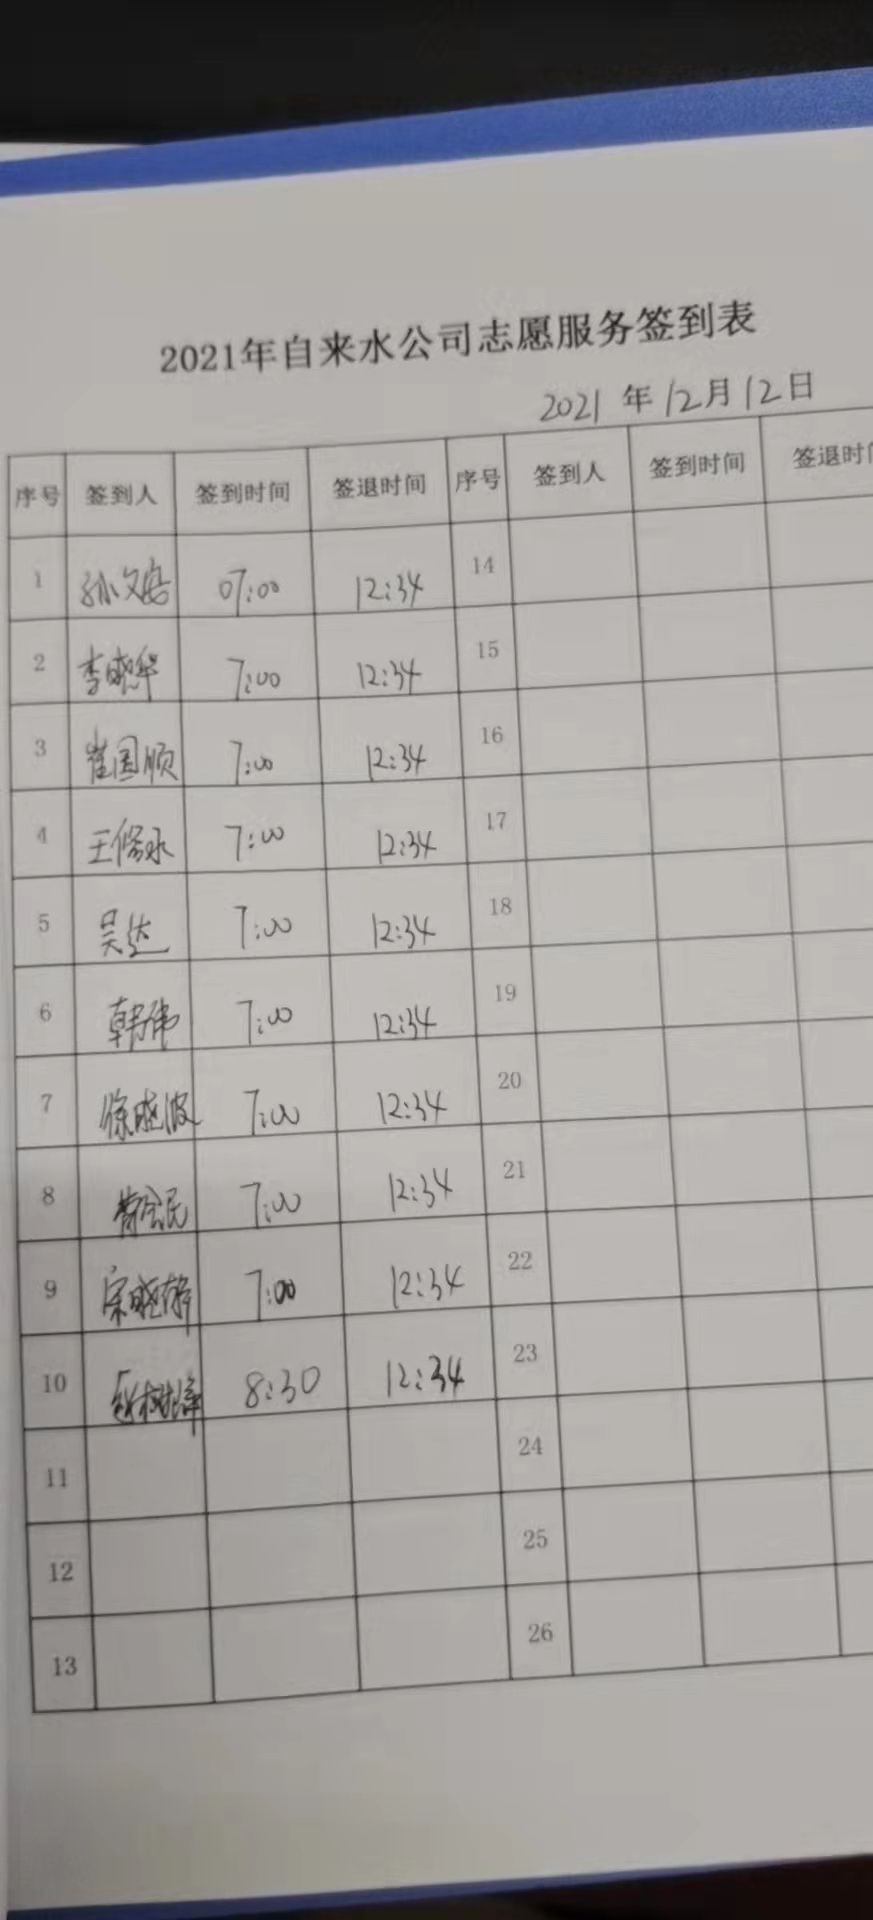 2021年自来水公司志愿服务签到表
2021 年 12月12日
序号 签到人 签到时间 签退时间 序号 签到人 签到时间 签退时
1 孙文安 07:00 12:34 14
2 李晓华 7:00 12:34 15
3 崔国顺 7:00 12:34 16
4 王修永 7:00 12:34 17
5 吴达 7:00 12:34 18
6 韩伟 7:00 12:34 19
7 徐晓波 7:00 12:34 20
8 7:00 12:34 21
9 宋晓静 7:00 12:34 22
10 8:30 12:34 23
11 24
12 25
13 26